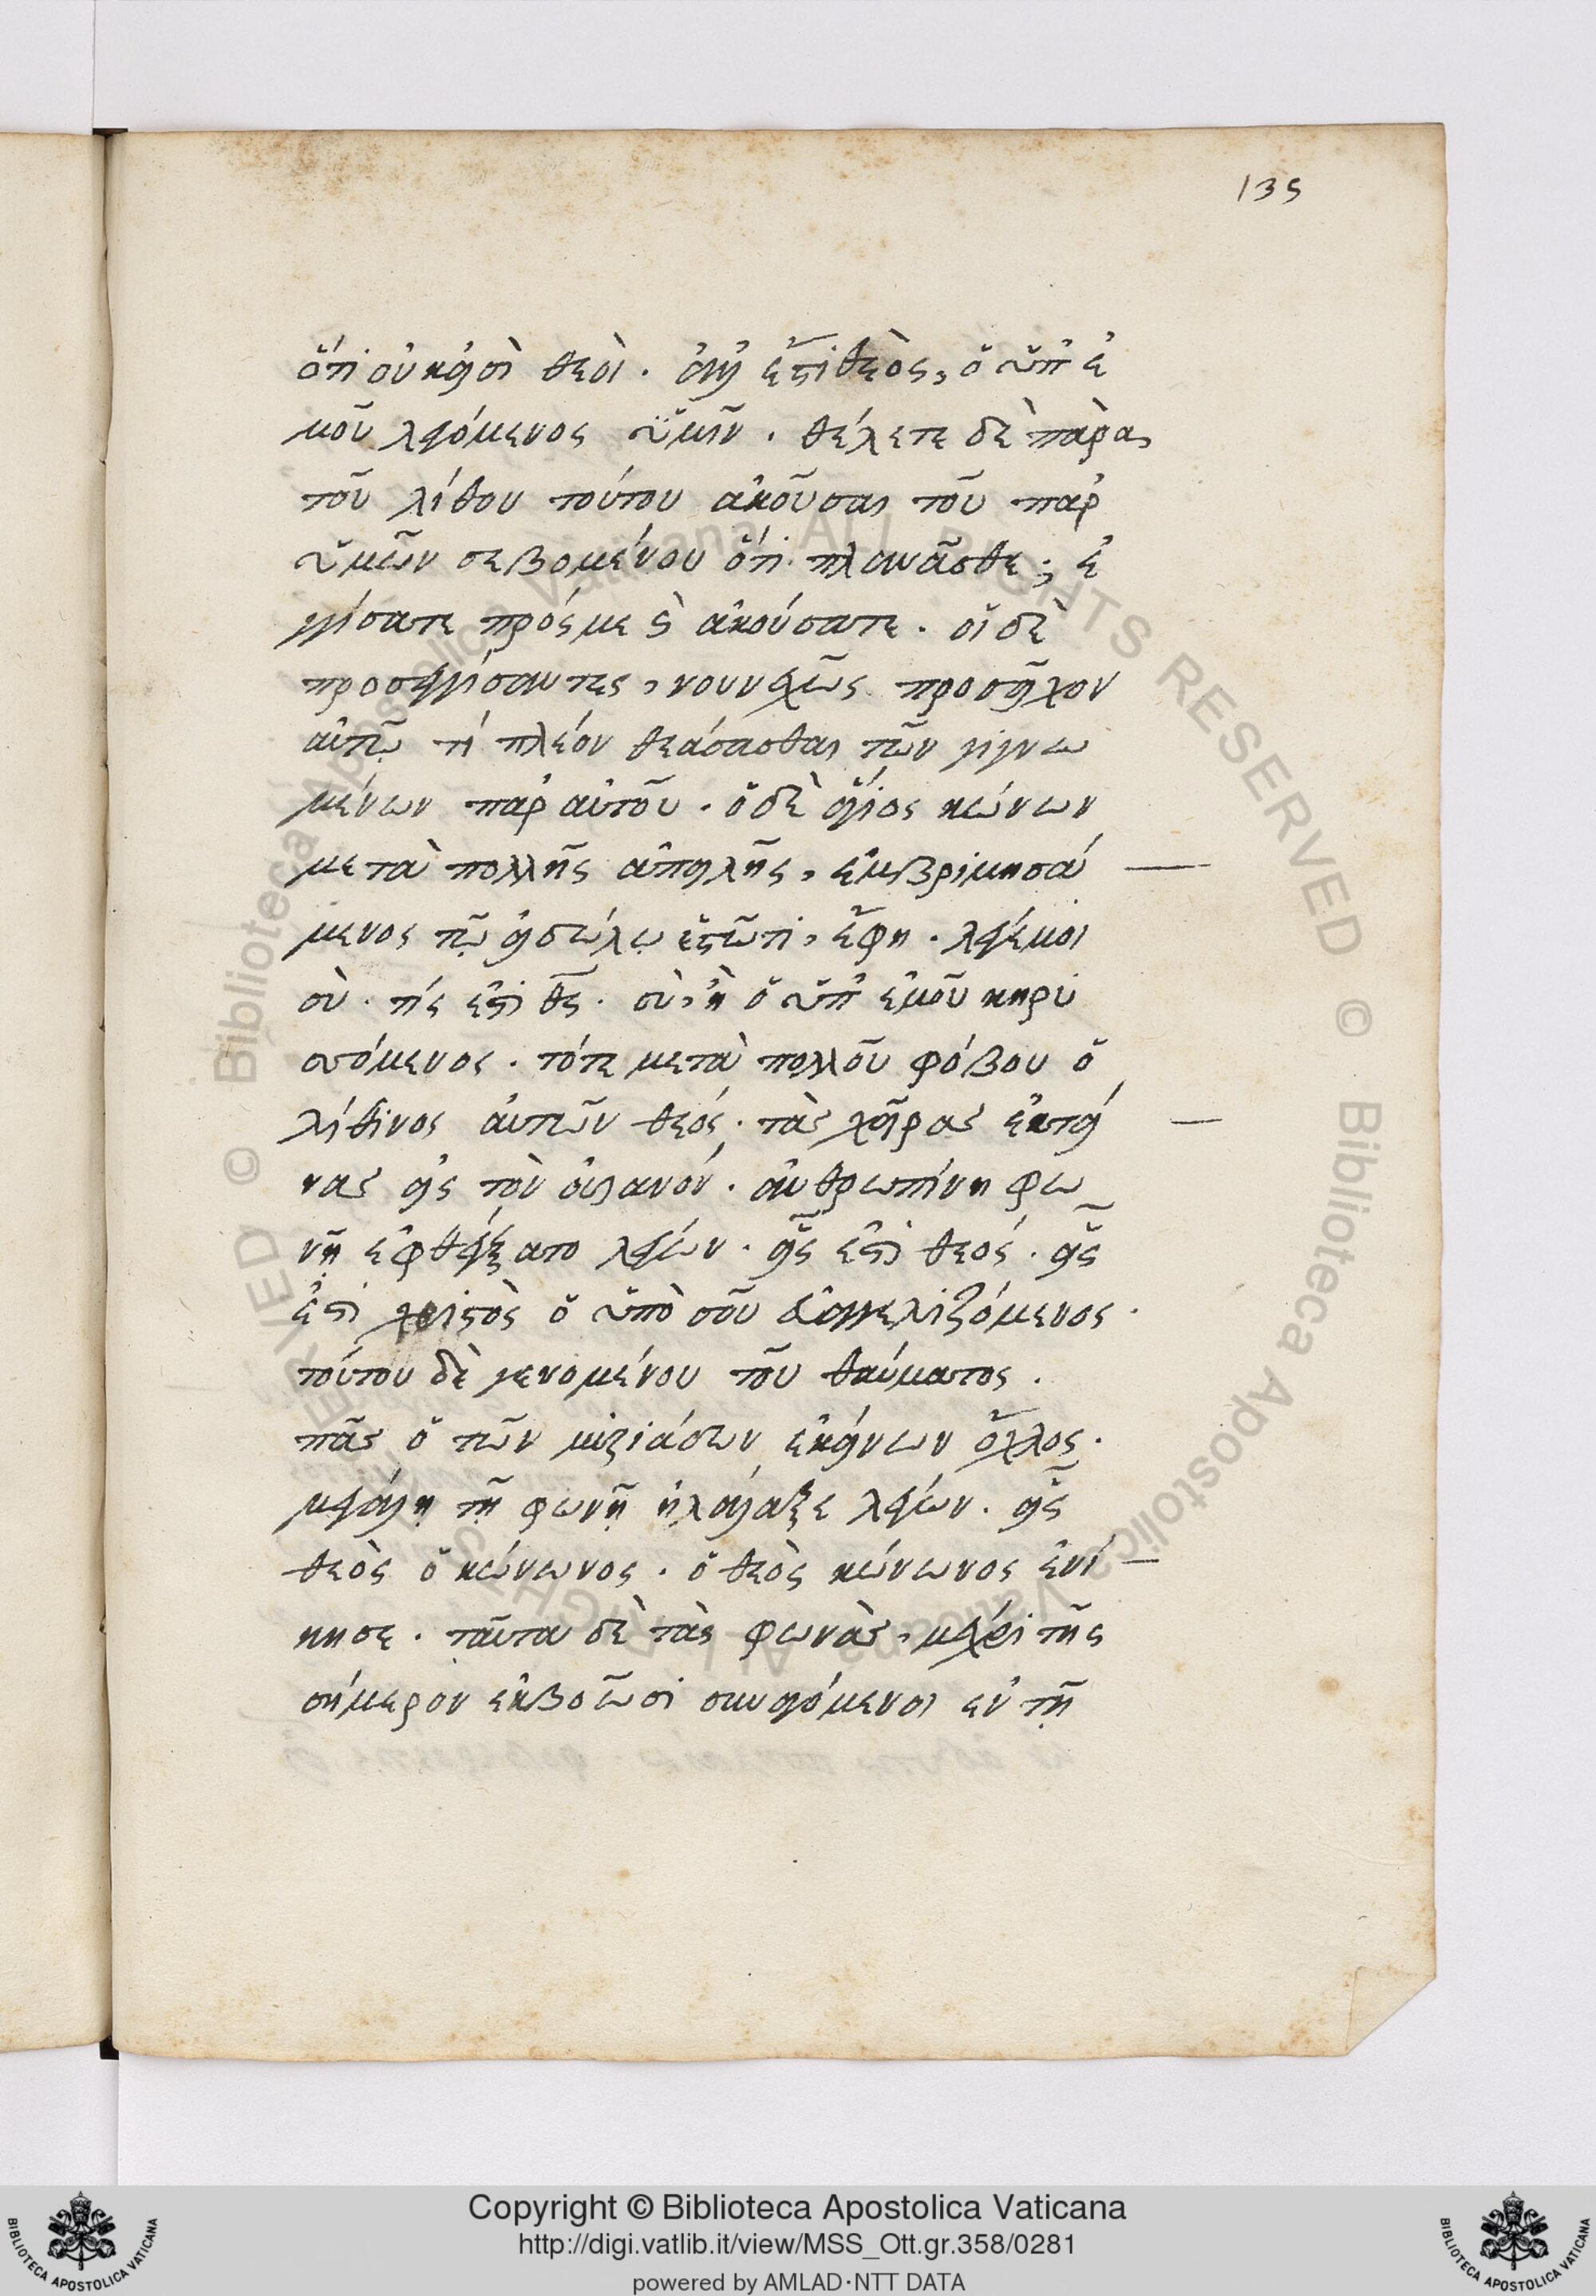 135
ὅτι οὐκ εἰσὶ θεοὶ. ἀλλ' ἔστι θεὸς, ὁ ὑπ' ἐ
μοῦ λεγόμενος ὑμῖν. θέλετε δὲ παρὰ
τοῦ λίθου τούτου ἀκοῦσαι τοῦ παρ'
ὑμῶν σεβομένου ὅτι πλανᾶσθε; ἐ
γγίσατε πρός με ς̀ ἀκούσατε. οἱ δὲ
προσεγγίσαντες, νουνεχῶς προσεῖχον
αὐτῷ τί πλέον θεάσασθαι τῶν γιγνω
μένων παρ' αὐτοῦ. ὁ δὲ ἅγιος κώνων
μετὰ πολλῆς ἀπειλῆς, ἐμβριμησά
μενος τῷ εἰδώλῳ ἑστῶτι, ἔφη. λέγε μοι
σὺ. τίς ἐστὶ θς. σὺ, ἢ ὁ ὑπ' ἐμοῦ κηρυ
σσόμενος. τότε μετὰ πολλοῦ φόβου ὁ
λίθινος αὐτῶν θεός. τὰς χεῖρας ἐκτεί
νας εἰς τὸν οὐρανόν. ἀνθρωπίνη φω
νῇ ἐφθέγξατο λέγων. εἷς ἐστὶ θεός. εἷς
ἐστὶ χριστὸς ὁ ὑπὸ σοῦ εὐαγγελιζόμενος.
τούτου δὲ γενομένου τοῦ θαύματος.
πᾶς ὁ τῶν μυριάδων ἐκείνων ὄχλος.
μεγάλῃ τῇ φωνῇ ἠλάλαξε λέγων. εἷς
θεὸς ὁ κώνωνος. ὁ θεὸς κώνωνος ἐνί
κησε. ταῦτα δὲ τὰς φωνὰς, μέχρι τῆς
σήμερον ἐκβοῶσι συναγόμενοι ἐν τῇ
© Biblioteca Apostolica Vaticana ALL RIGHTS RESERVED
© Biblioteca Apostolica Vaticana ALL RIGHTS RESERVED
BIBLIOTECA APOSTOLICA VATICANA
Copyright © Biblioteca Apostolica Vaticana
http://digi.vatlib.it/view/MSS_Ott.gr.358/0281
powered by AMLAD·NTT DATA
BIBLIOTECA APOSTOLICA VATICANA